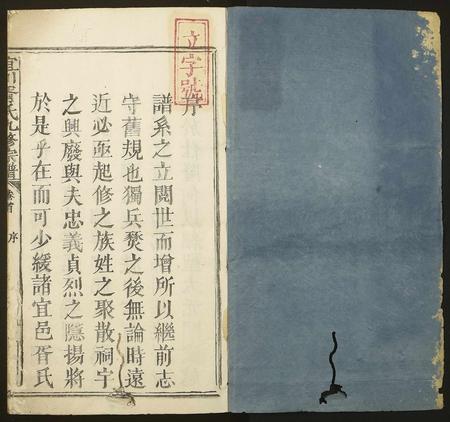 文字號
序
譜系之立閱世而增所以繼前志
守舊規也獨兵燹之後無論時遠
近必亟起修之族姓之聚散祠宇
之興廢與夫忠義貞烈之隱揚將
於是乎在而可少緩諸宜邑胥氏
宜川胥氏九修宗譜
卷首
序